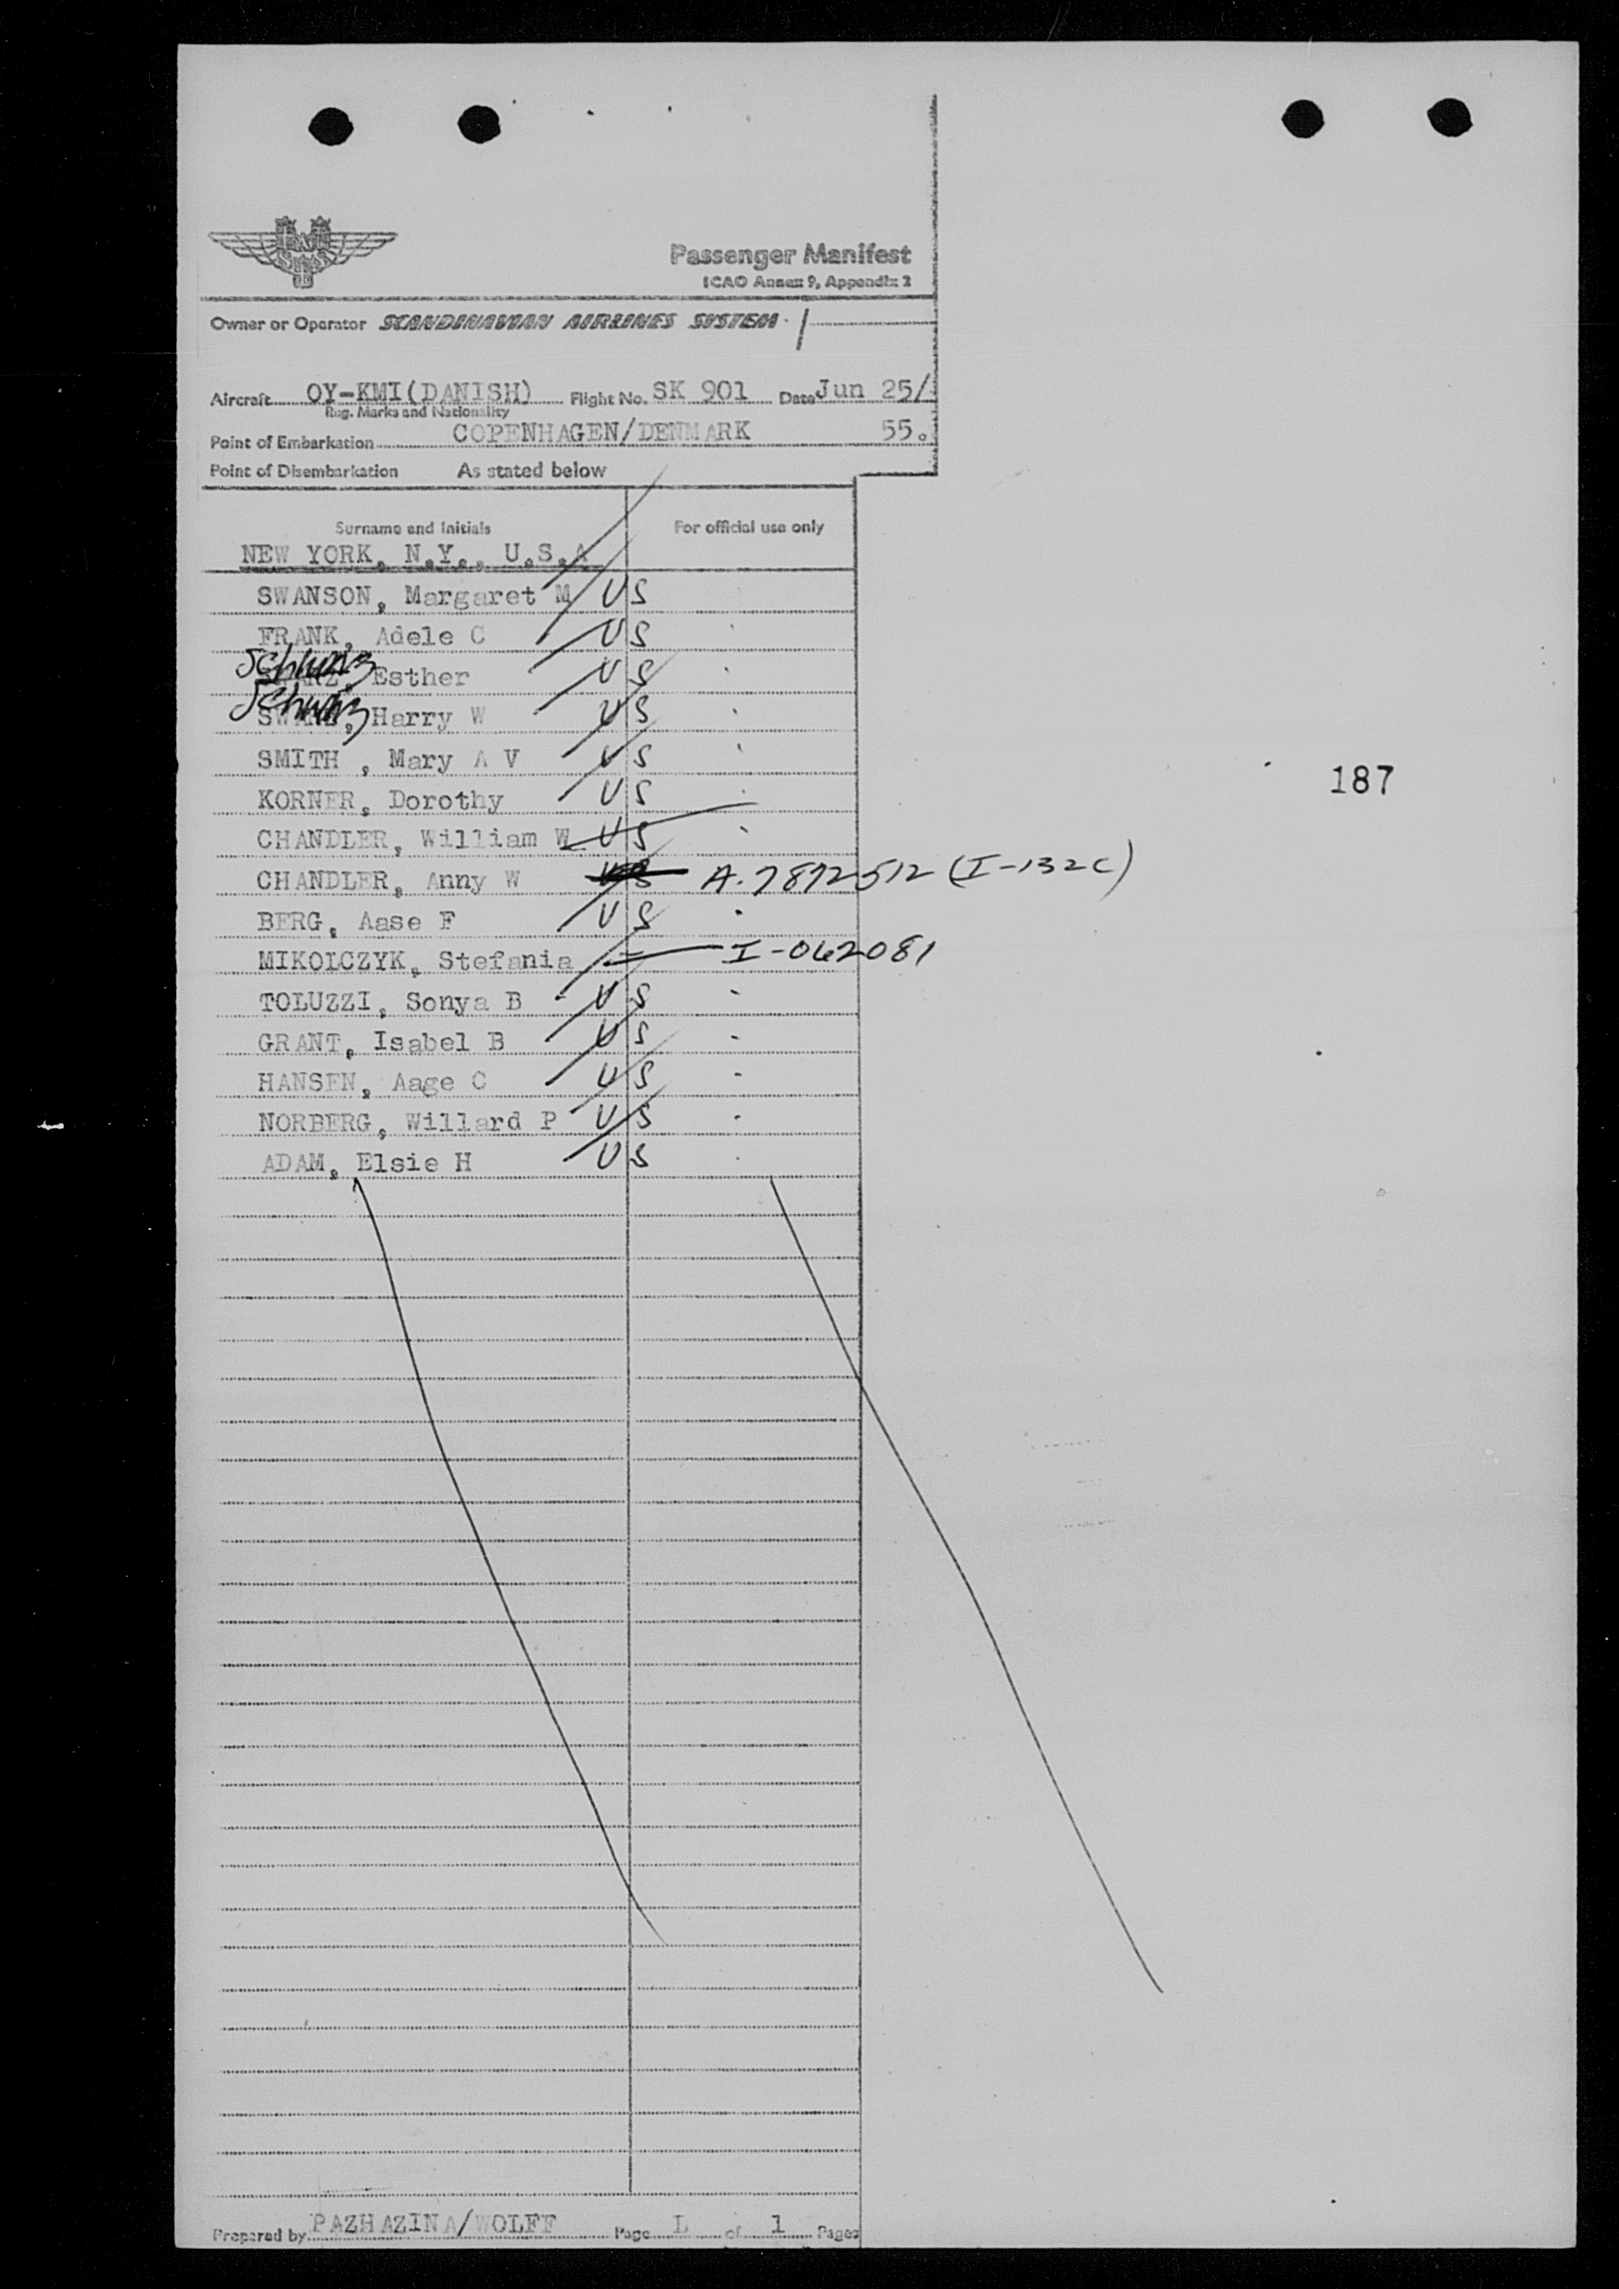 SAS
Passenger Manifest
ICAO Annex 9, Appendix 2
Owner or Operator SCANDINAVIAN AIRLINES SYSTEM
Aircraft OY-KMI(DANISH) Flight No. SK 901 Date Jun 25/
Reg. Marks and Nationality
Point of Embarkation COPENHAGEN/DENMARK 55.
Point of Disembarkation As stated below
Surname and Initials For official use only
NEW YORK, N.Y., U.S.A
SWANSON, Margaret M US
FRANK, Adele C US
Schwarz, Esther US
Schwarz, Harry W US
SMITH , Mary A V US
KORNER, Dorothy US
187
CHANDLER, William W US
CHANDLER, Anny W US A.7872512 (I-132C)
BERG, Aase F US
MIKOLCZYK, Stefania I-062081
TOLUZZI, Sonya B US
GRANT, Isabel B US
HANSEN, Aage C US
NORBERG, Willard P US
ADAM, Elsie H US
Prepared by PAZHAZINA/WOLFF Page 1 of 1 Pages